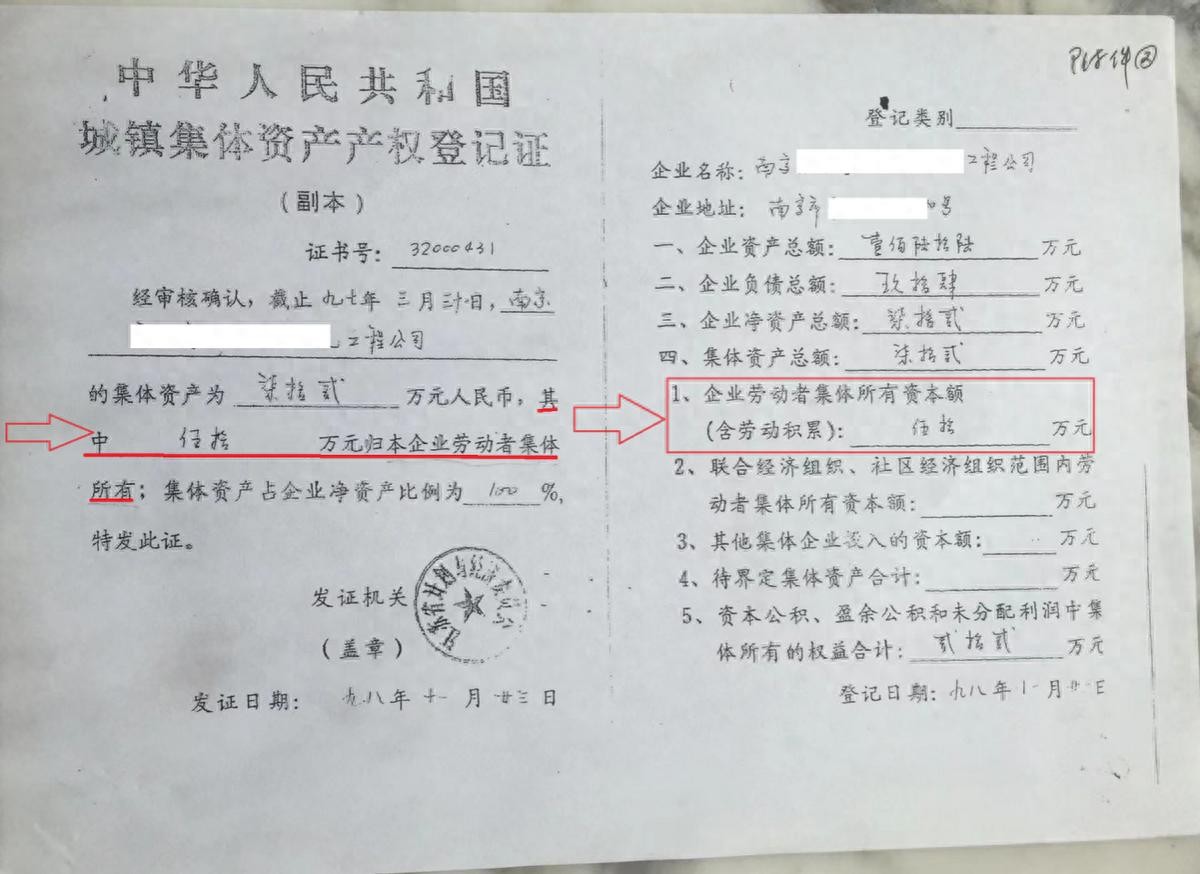 附件②
中华人民共和国
城镇集体资产产权登记证
（副本）
证书号：32000431
经审核确认，截止九七年三月三十日，南京
工程公司
的集体资产为 柒拾贰 万元人民币，其
中 伍拾 万元归本企业劳动者集体
所有；集体资产占企业净资产比例为 100 %，
特发此证。
发证机关
（盖章）
发证日期： 九八年十一月廿三日
登记类别
企业名称：南京 工程公司
企业地址：南京市 号
一、企业资产总额： 壹佰陆拾陆 万元
二、企业负债总额： 玖拾肆 万元
三、企业净资产总额： 柒拾贰 万元
四、集体资产总额： 柒拾贰 万元
1、企业劳动者集体所有资本额
（含劳动积累）： 伍拾 万元
2、联合经济组织、社区经济组织范围内劳
动者集体所有资本额： 万元
3、其他集体企业投入的资本额： 万元
4、待界定集体资产合计： 万元
5、资本公积、盈余公积和未分配利润中集
体所有的权益合计： 贰拾贰 万元
登记日期：九八年 月 日